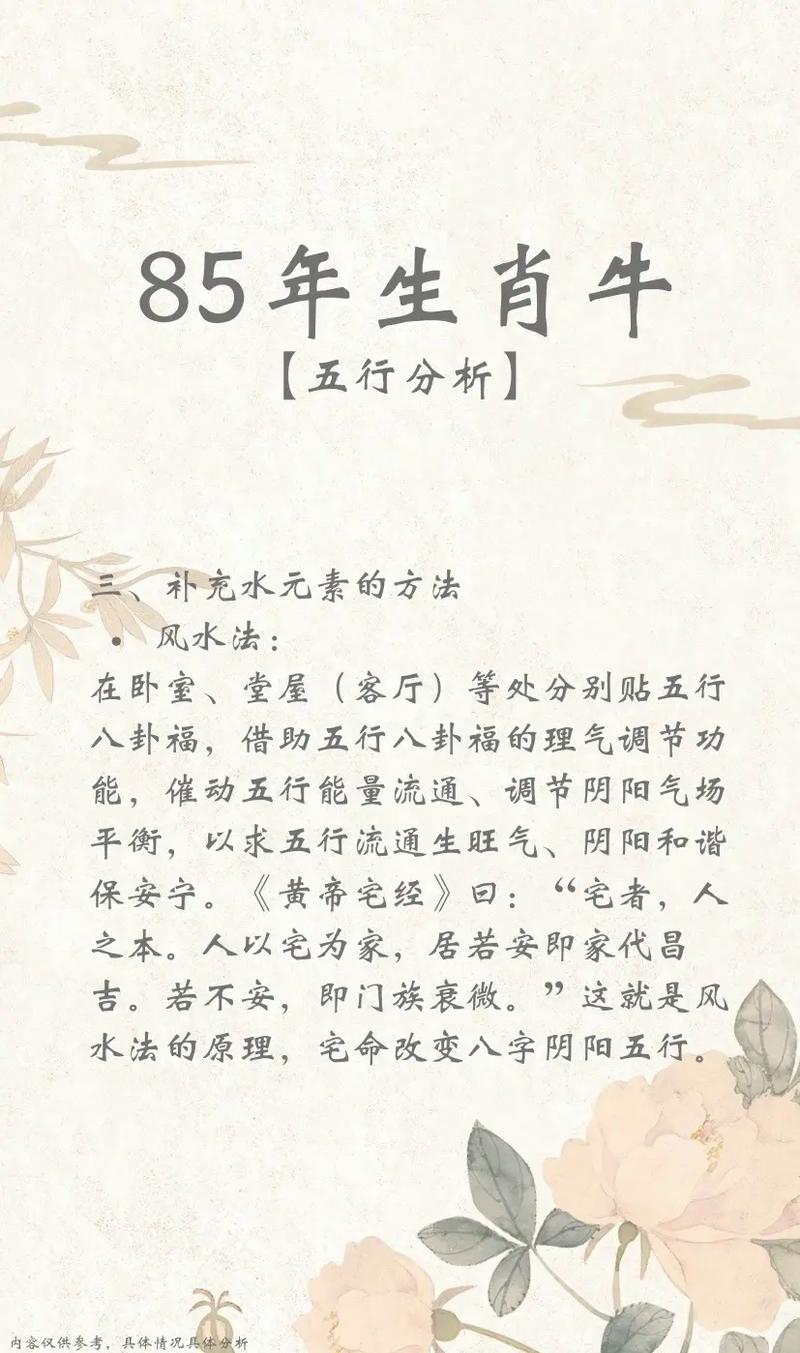 85年生肖牛
【五行分析】
三、补充水元素的方法
• 风水法：
在卧室、堂屋（客厅）等处分别贴五行
八卦福，借助五行八卦福的理气调节功
能，催动五行能量流通、调节阴阳气场
平衡，以求五行流通生旺气、阴阳和谐
保安宁。《黄帝宅经》曰：“宅者，人
之本。人以宅为家，居若安即家代昌
吉。若不安，即门族衰微。”这就是风
水法的原理，宅命改变八字阴阳五行。
内容仅供参考，具体情况具体分析